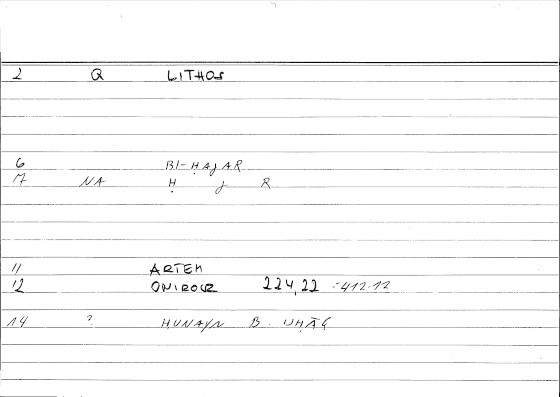 2 Q LITHOS
6 BI-ḤAJAR
7 NA Ḥ J R
11 ARTEM
12 ONIROCR 224,22 = 412.12
14 ? HUNAYN B.